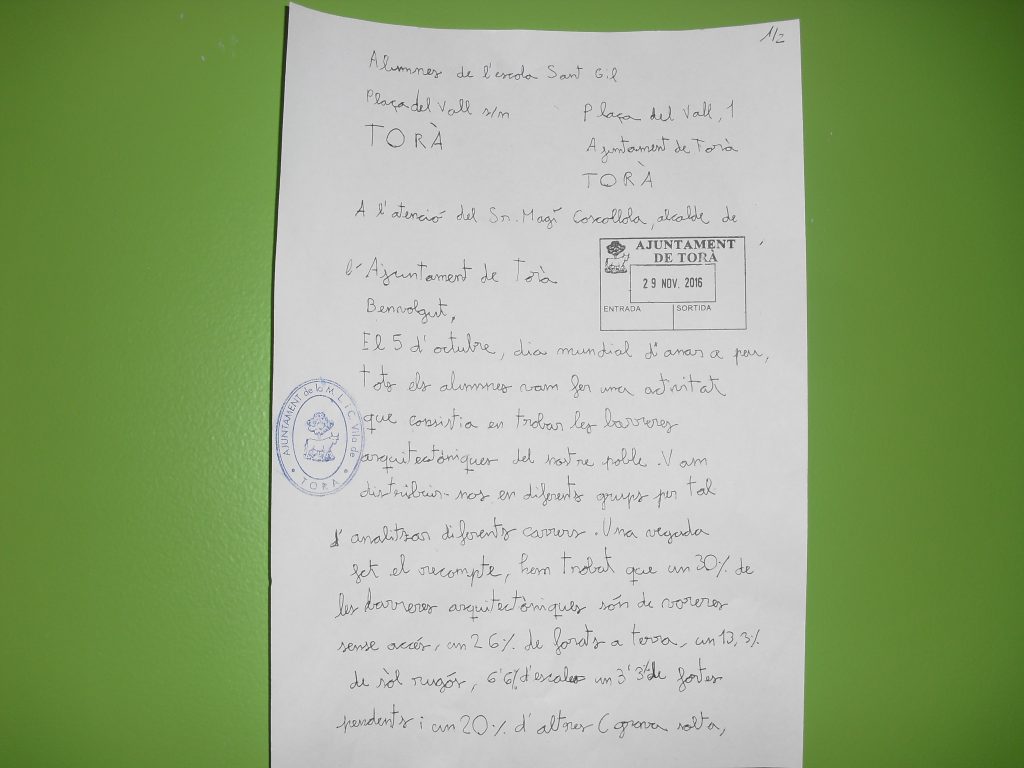 1/2
Alumnes de l'escola Sant Gil
Plaça del Vall s/n
TORÀ
Plaça del Vall, 1
Ajuntament de Torà
TORÀ
A l'atenció del Sr. Magí Coscollola, alcalde de
l'Ajuntament de Torà
AJUNTAMENT
DE TORÀ
29 NOV. 2016
ENTRADA SORTIDA
Benvolgut,
El 5 d'octubre, dia mundial d'anar a peu,
tots els alumnes vam fer una activitat
que consistia en trobar les barreres
arquitectòniques del nostre poble. Vam
distribuir-nos en diferents grups per tal
d'analitzar diferents carrers. Una vegada
fet el recompte, hem trobat que un 30% de
les barreres arquitectòniques són de voreres
sense accés, un 26% de forats a terra, un 13,3%
de sòl rugós, 6'6% d'escales un 3'3% de fortes
pendents i un 20% d'altres (grava solta,
AJUNTAMENT de la M. L. i C. Vila de
TORÀ